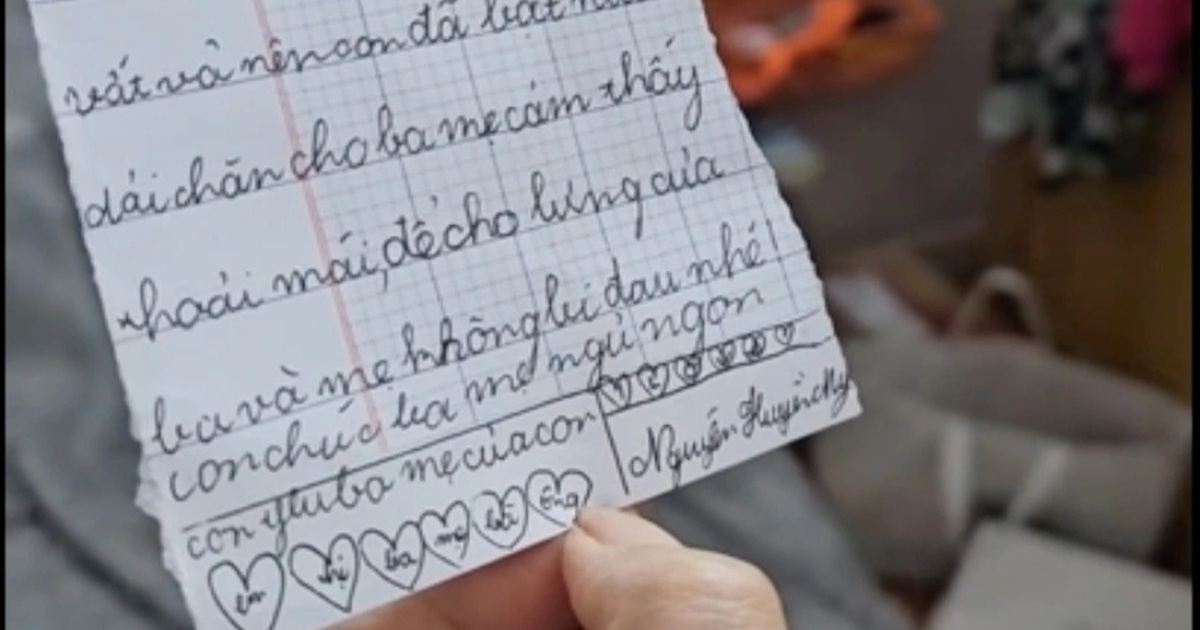 vất vả nên con đã bật
dải chăn cho ba mẹ cảm thấy
thoải mái, để cho lưng của
ba và mẹ không bị đau nhé!
con chúc ba mẹ ngủ ngon
con yêu ba mẹ của con
Nguyễn Huyền My
em chị ba mẹ bà ông